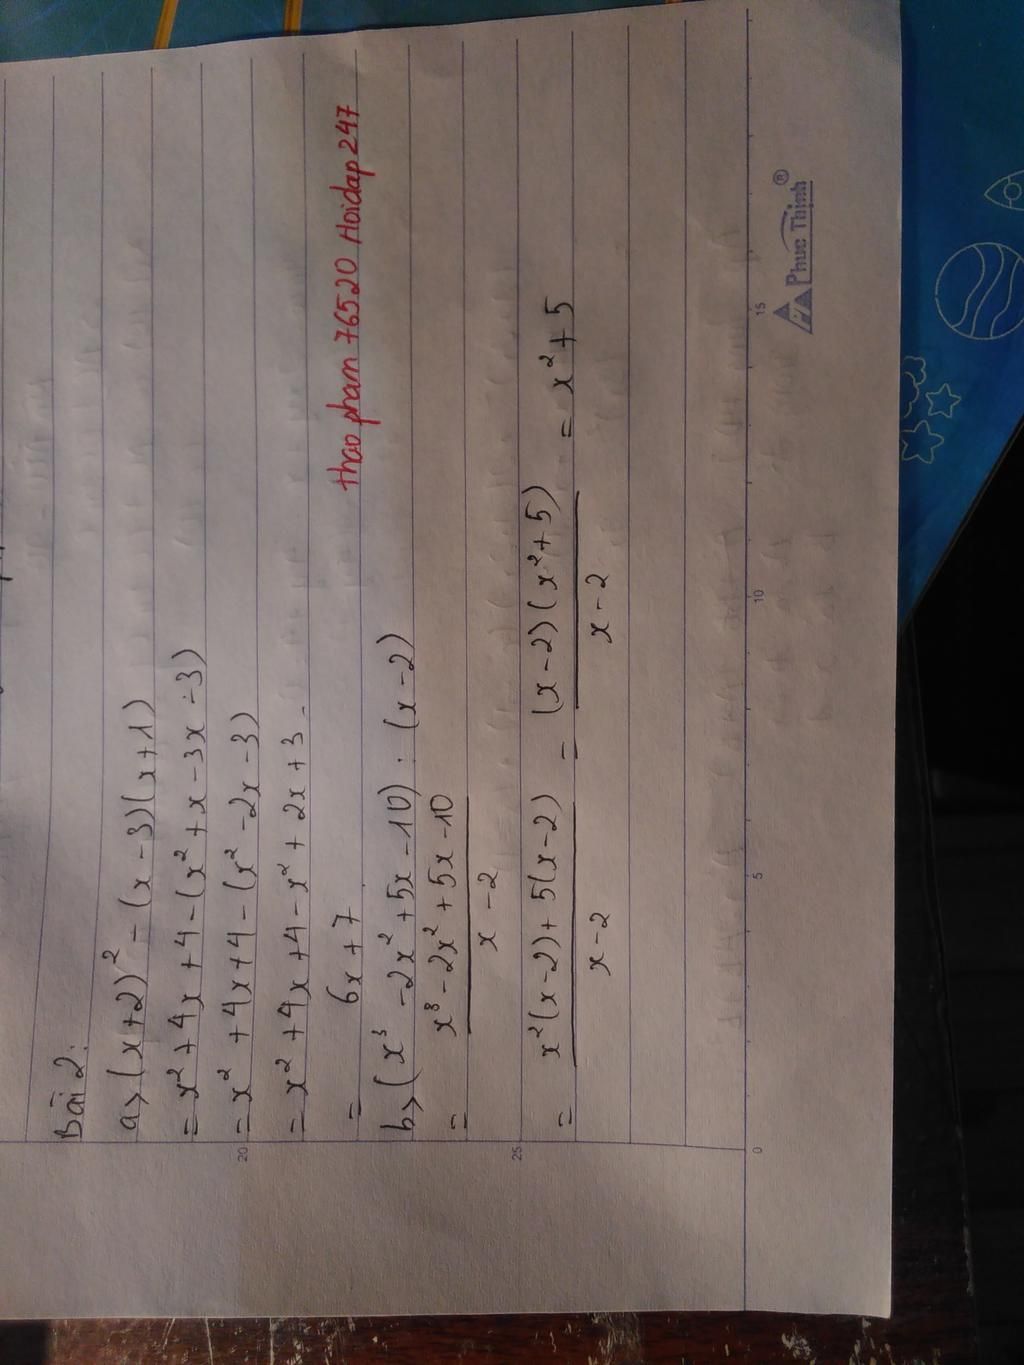 Bài 2:
a> (x+2)² - (x-3)(x+1)
= x² + 4x + 4 - (x² + x - 3x - 3)
= x² + 4x + 4 - (x² - 2x - 3)
= x² + 4x + 4 - x² + 2x + 3
= 6x + 7
thao pham 76520 Hoidap 247
b> (x³ - 2x² + 5x - 10) : (x - 2)
= x³ - 2x² + 5x - 10
x - 2
= x²(x-2) + 5(x-2) = (x-2)(x²+5) = x² + 5
x - 2 x - 2
20
25
0 5 10 15
Phuc Thinh®